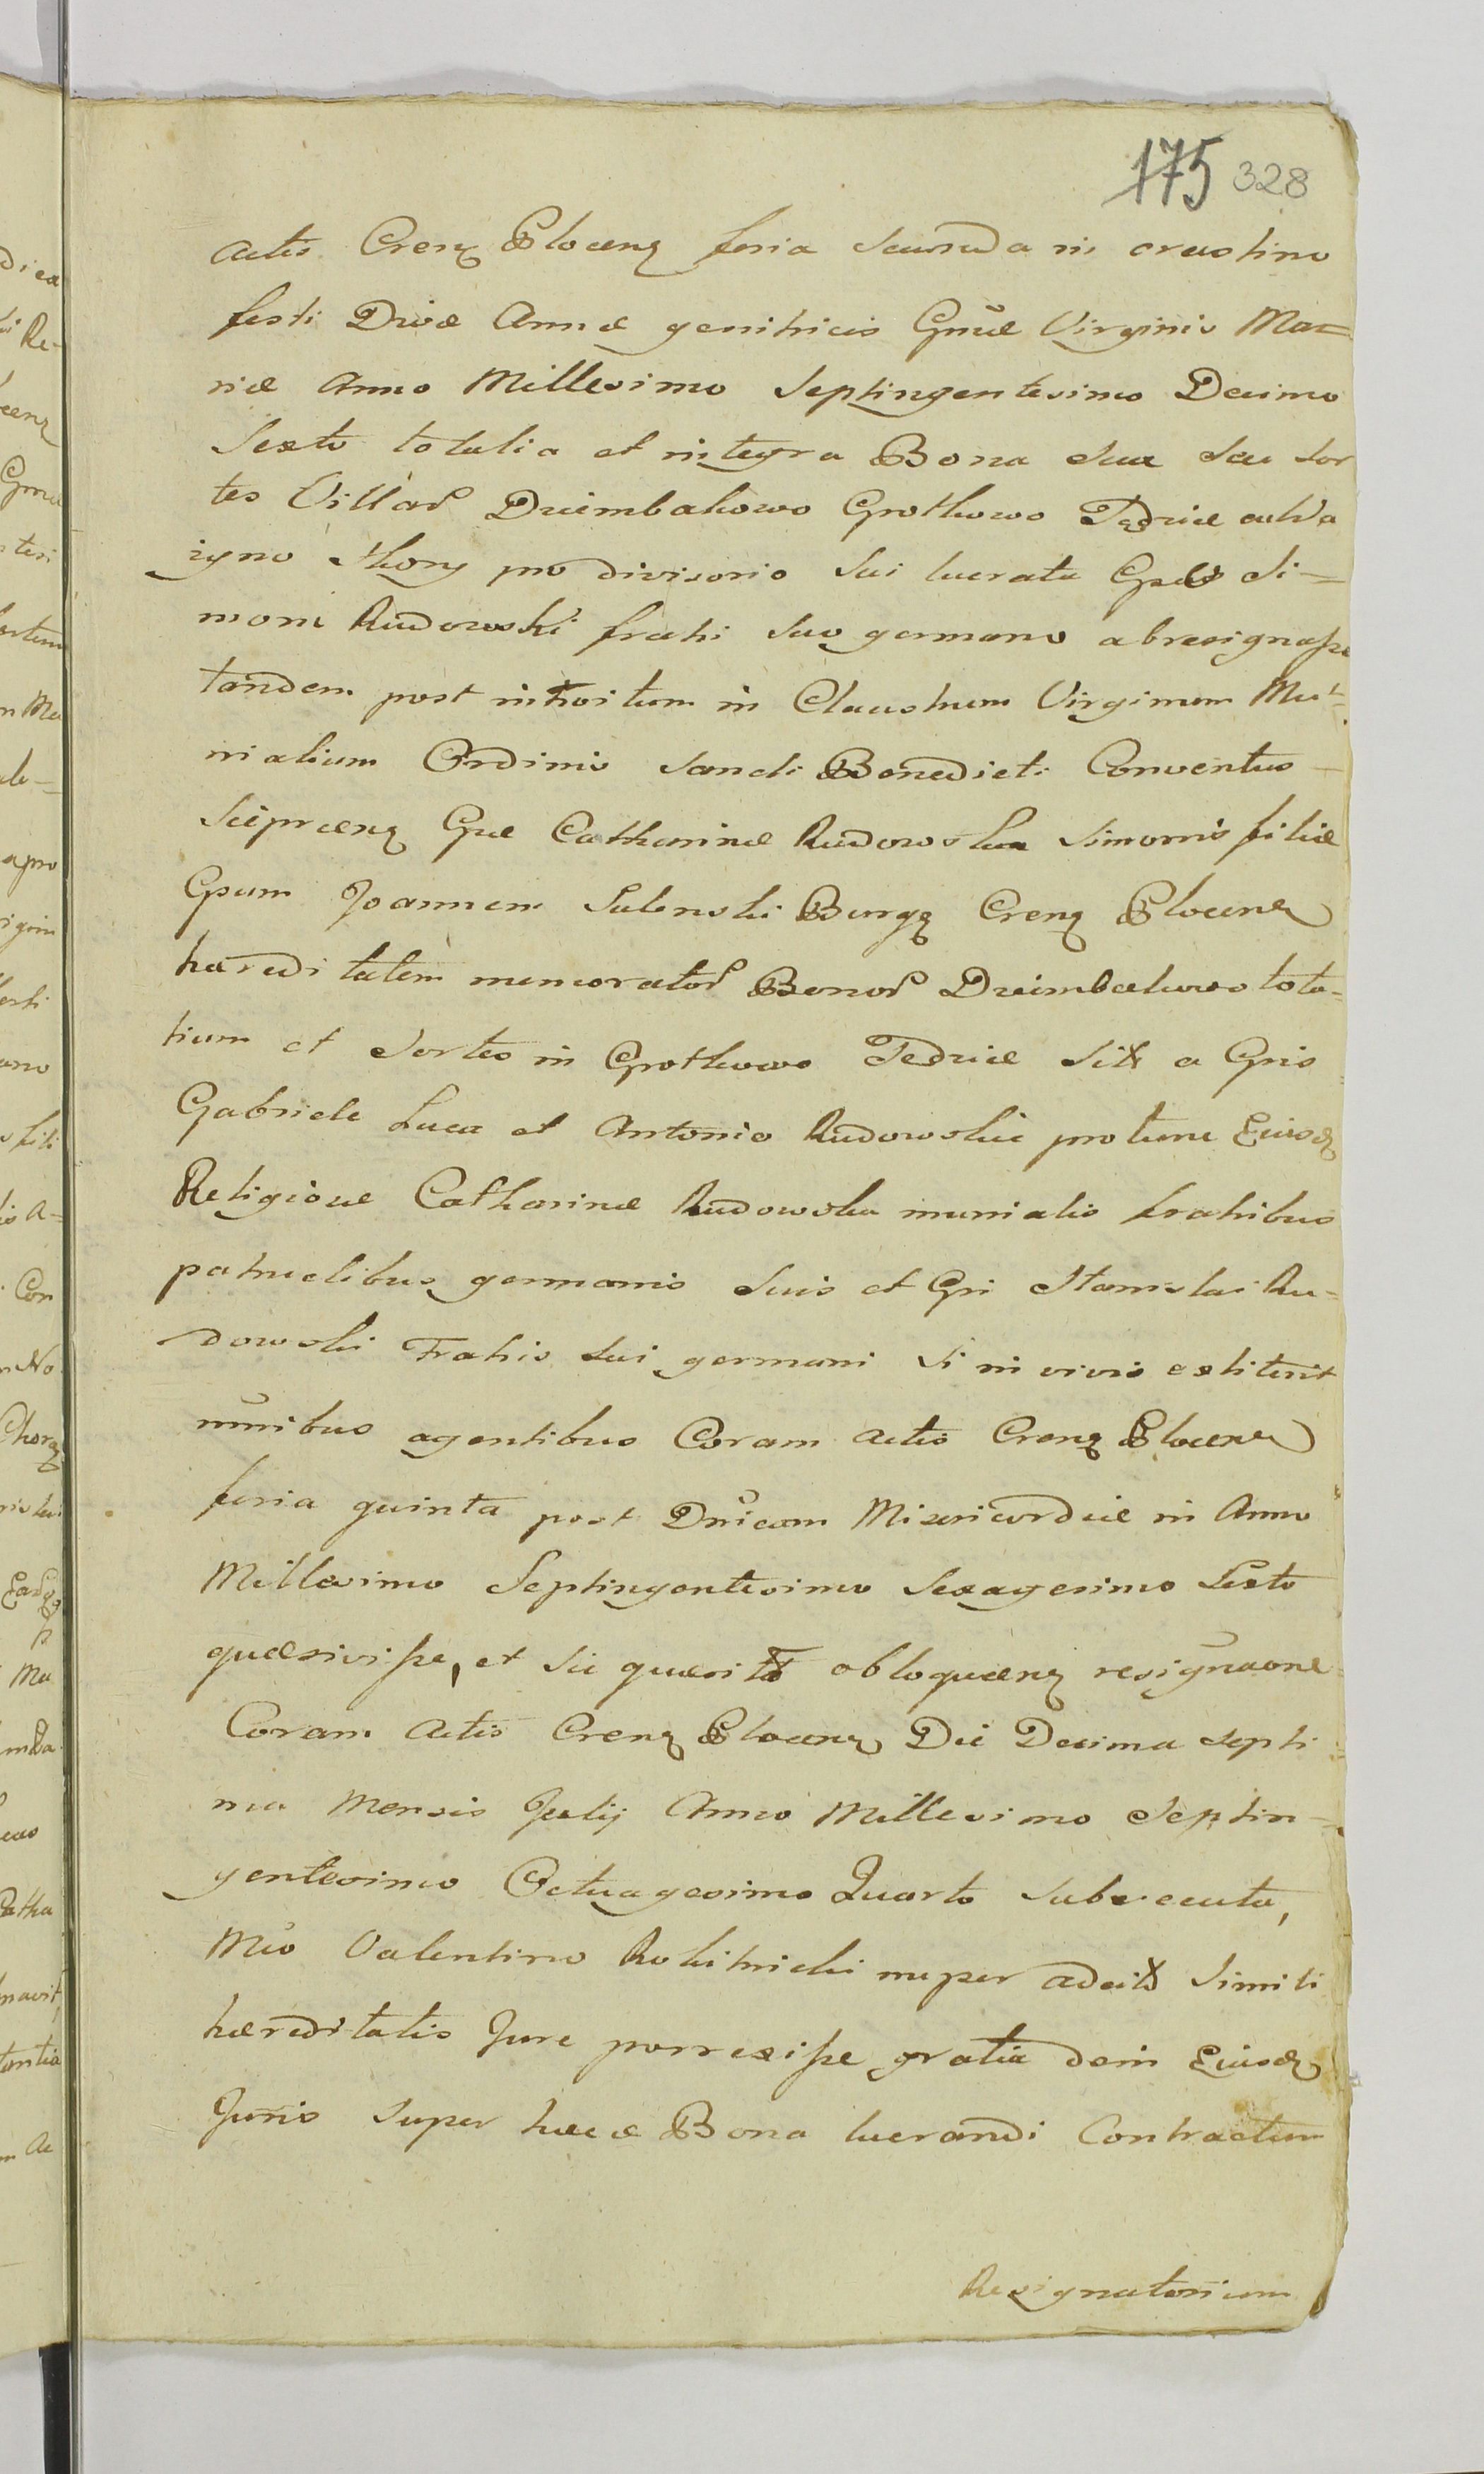 175 328
actis Crenꝫ Plocenꝫ feria Secunda in crastino
festi Divæ Annæ genitricis Gnæ Virginis Ma=
riæ Anno Millesimo Septingentesimo Decimo
Sexto totalia et integra Bona sua seu sor
tes Villar Dziembakowo Grotkowo Tędzice
pro divisorio sui lucrata Gso Si=
moni Rudowski fratri suo germano abresignasse
tandem post introitum in Claustrum Virginum Mo=
nialium Ordinis Sancti Benedicti Conventus
Sieprcenꝫ Gne Catharinæ Rudowska Simonis filiæ
Gsum Joannem Sulenski Burgꝫ Crenꝫ Plocenꝫ
hæreditatem memorator Bonor Dziembakowo tota=
lium et Sortes in Grotkowo Tedzice Sitt a Gsis
Gabriele Luca et Antonio Rudowskie pro tunc Eiusdꝫ
Religiosæ Catharinæ Rudowska monialis fratribus
patruelibus germanis suis et Gsi Stanislai Ru=
dowski Fratris sui germani si in vivis extiterit
nnibus agentibus Coram actis Crenꝫ Plocenꝫ
feria quinta post Dnicam Misericordiæ in Anno
Millesimo Septingentesimo Sexagesimo Sexto
quæsivisse, et sic quæsitt obloquenꝫ resignaone
Coram Actis Crenꝫ Plocenꝫ Die Decima Septi=
ma Mensis Julij Anno Millesimo Septin=
gentesimo Octuagesimo Quarto subsecuta,
Mco Valentino Rokitnicki nuper adeitt simili
hæreditatis Jure porrexisse gratia dein Eiusdꝫ
Juris super hæce Bona lucrandi Contractum
Resignatorium